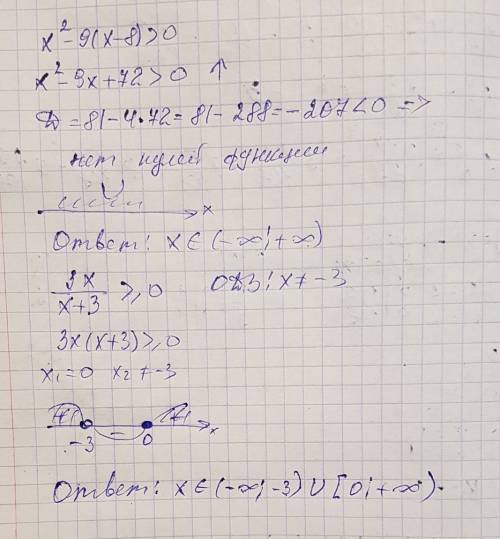 x²-9(x-8)>0
x²-9x+72>0 ↑
D=81-4·72=81-288=-207<0 =>
нет нулей функции
x
Ответ: x∈(-∞;+∞)
3x/(x+3) ≥0 ОДЗ: x≠-3
3x(x+3)≥0
x₁=0 x₂≠-3
+ - + x
-3 0
Ответ: x∈(-∞;-3)∪[0;+∞).